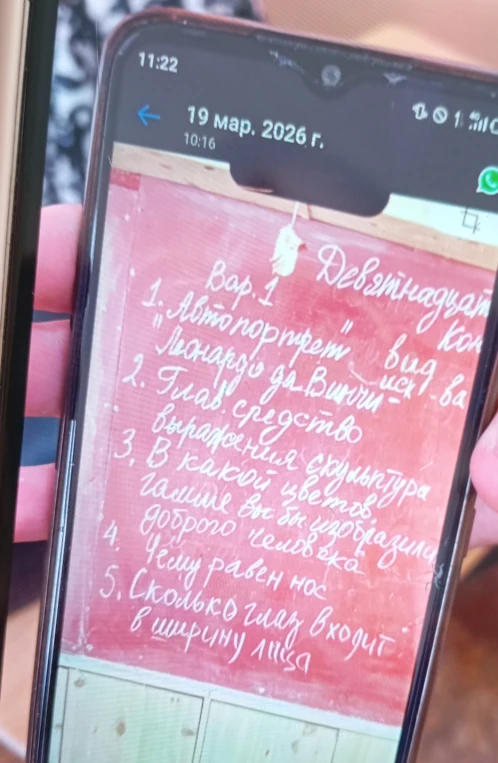 11:22
19 мар. 2026 г.
10:16
Девятнадцат
Вар. 1
Кон
1. Автопортрет"
"Леонардо да Винчи - вид иск-ва
2. Глав. средство
выражения скульптура
3. В какой цветов.
гамме вы бы изобразили
доброго человека
4. Чему равен нос
5. Сколько глаз входит
в ширину лица